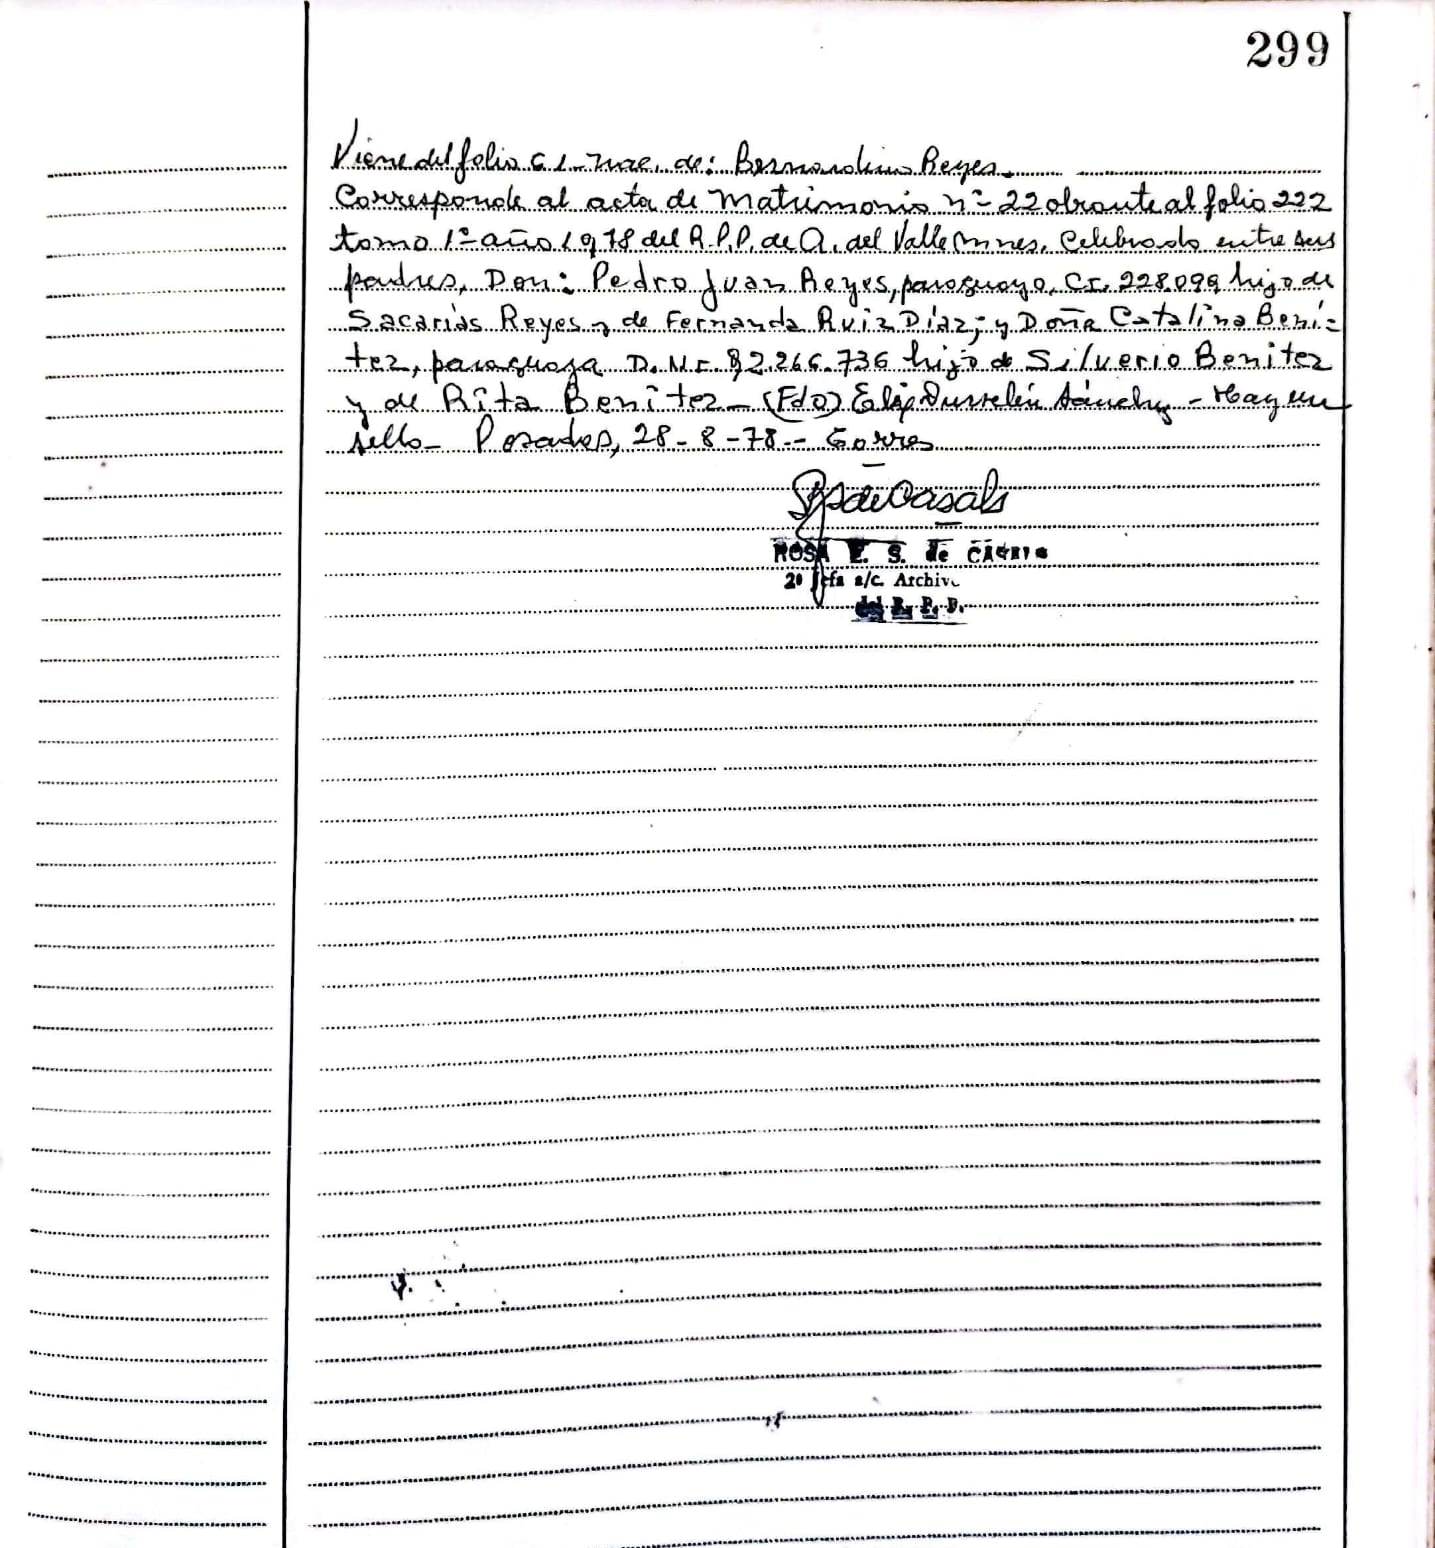 299
Viene del folio 61-Nac. de: Bernardino Reyes.
Corresponde al acta de Matrimonio nº 22 obrante al folio 222
tomo 1º año 1978 del R.P.P. de A. del Valle Mnes. Celebrado entre sus
padres, Don: Pedro Juan Reyes, paraguayo, CI. 228.099 hijo de
Sacarias Reyes y de Fernanda Ruiz Díaz; y Doña Catalina Bení=
tez, paraguaya D.N.I. 92.266.736 hija de Silverio Benitez
y de Rita Benitez - (Fdo) Sánchez - Hay un
sello - Posadas, 28-8-78.- Gorres
de Casals
ROSA E. S. de
2º Jefa a/c. Archivo
del R. P. P.